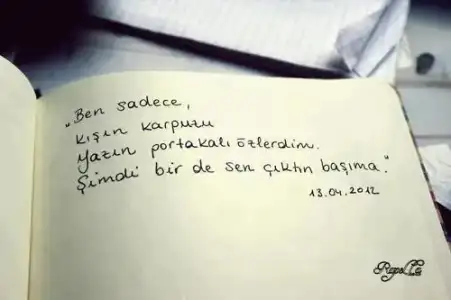 "Ben sadece,
kışın karpuzu
Yazın portakalı özlerdim.
Şimdi bir de sen çıktın başıma."
13.04.2012